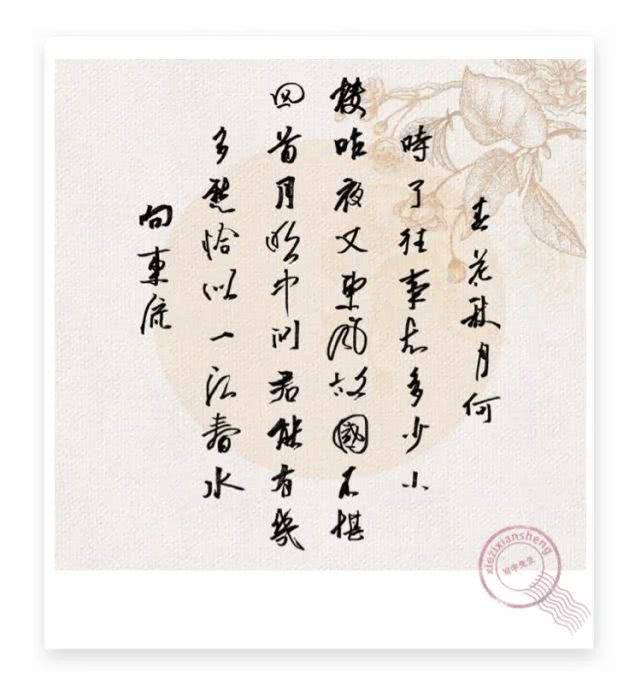 春花秋月何
時了往事知多少小
楼昨夜又東风故國不堪
回首月明中问君能有幾
多愁恰似一江春水
向東流
xiezixiansheng
写字先生